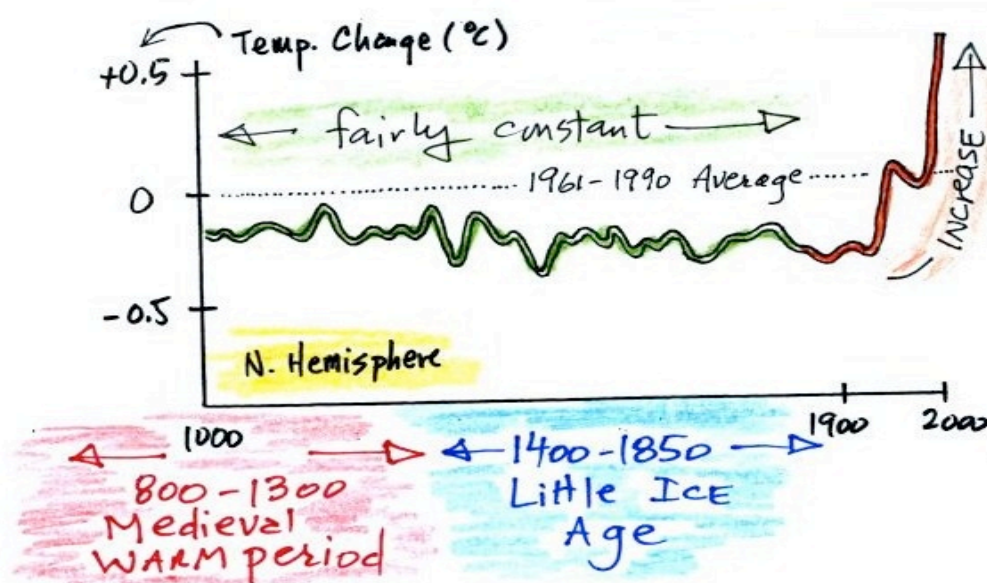 Temp. Change (°C)
+0.5
fairly constant
1961-1990 Average
0
INCREASE
-0.5
N. Hemisphere
1000
1900
2000
800-1300
Medieval
WARM period
1400-1850
Little ICE
Age